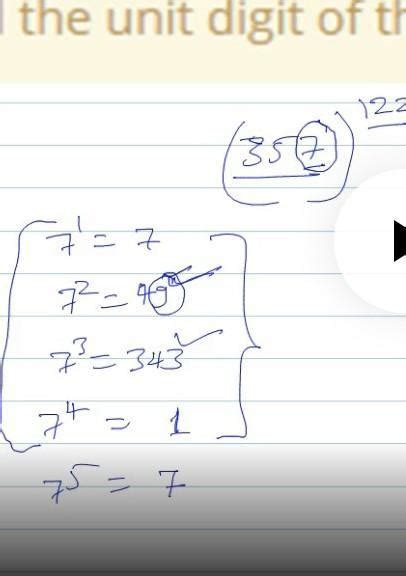 the unit digit of th
(357)^122
7^1 = 7
7^2 = 49
7^3 = 343
7^4 = 1
7^5 = 7